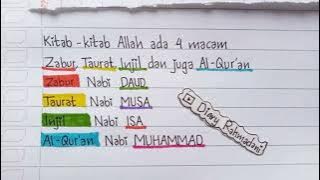 Kitab-kitab Allah ada 4 macam
Zabur, Taurat, Injil dan juga Al-Qur'an
Zabur Nabi DAUD
Taurat Nabi MUSA
Injil Nabi ISA
Al-Qur'an Nabi MUHAMMAD
Diary Rahmadani